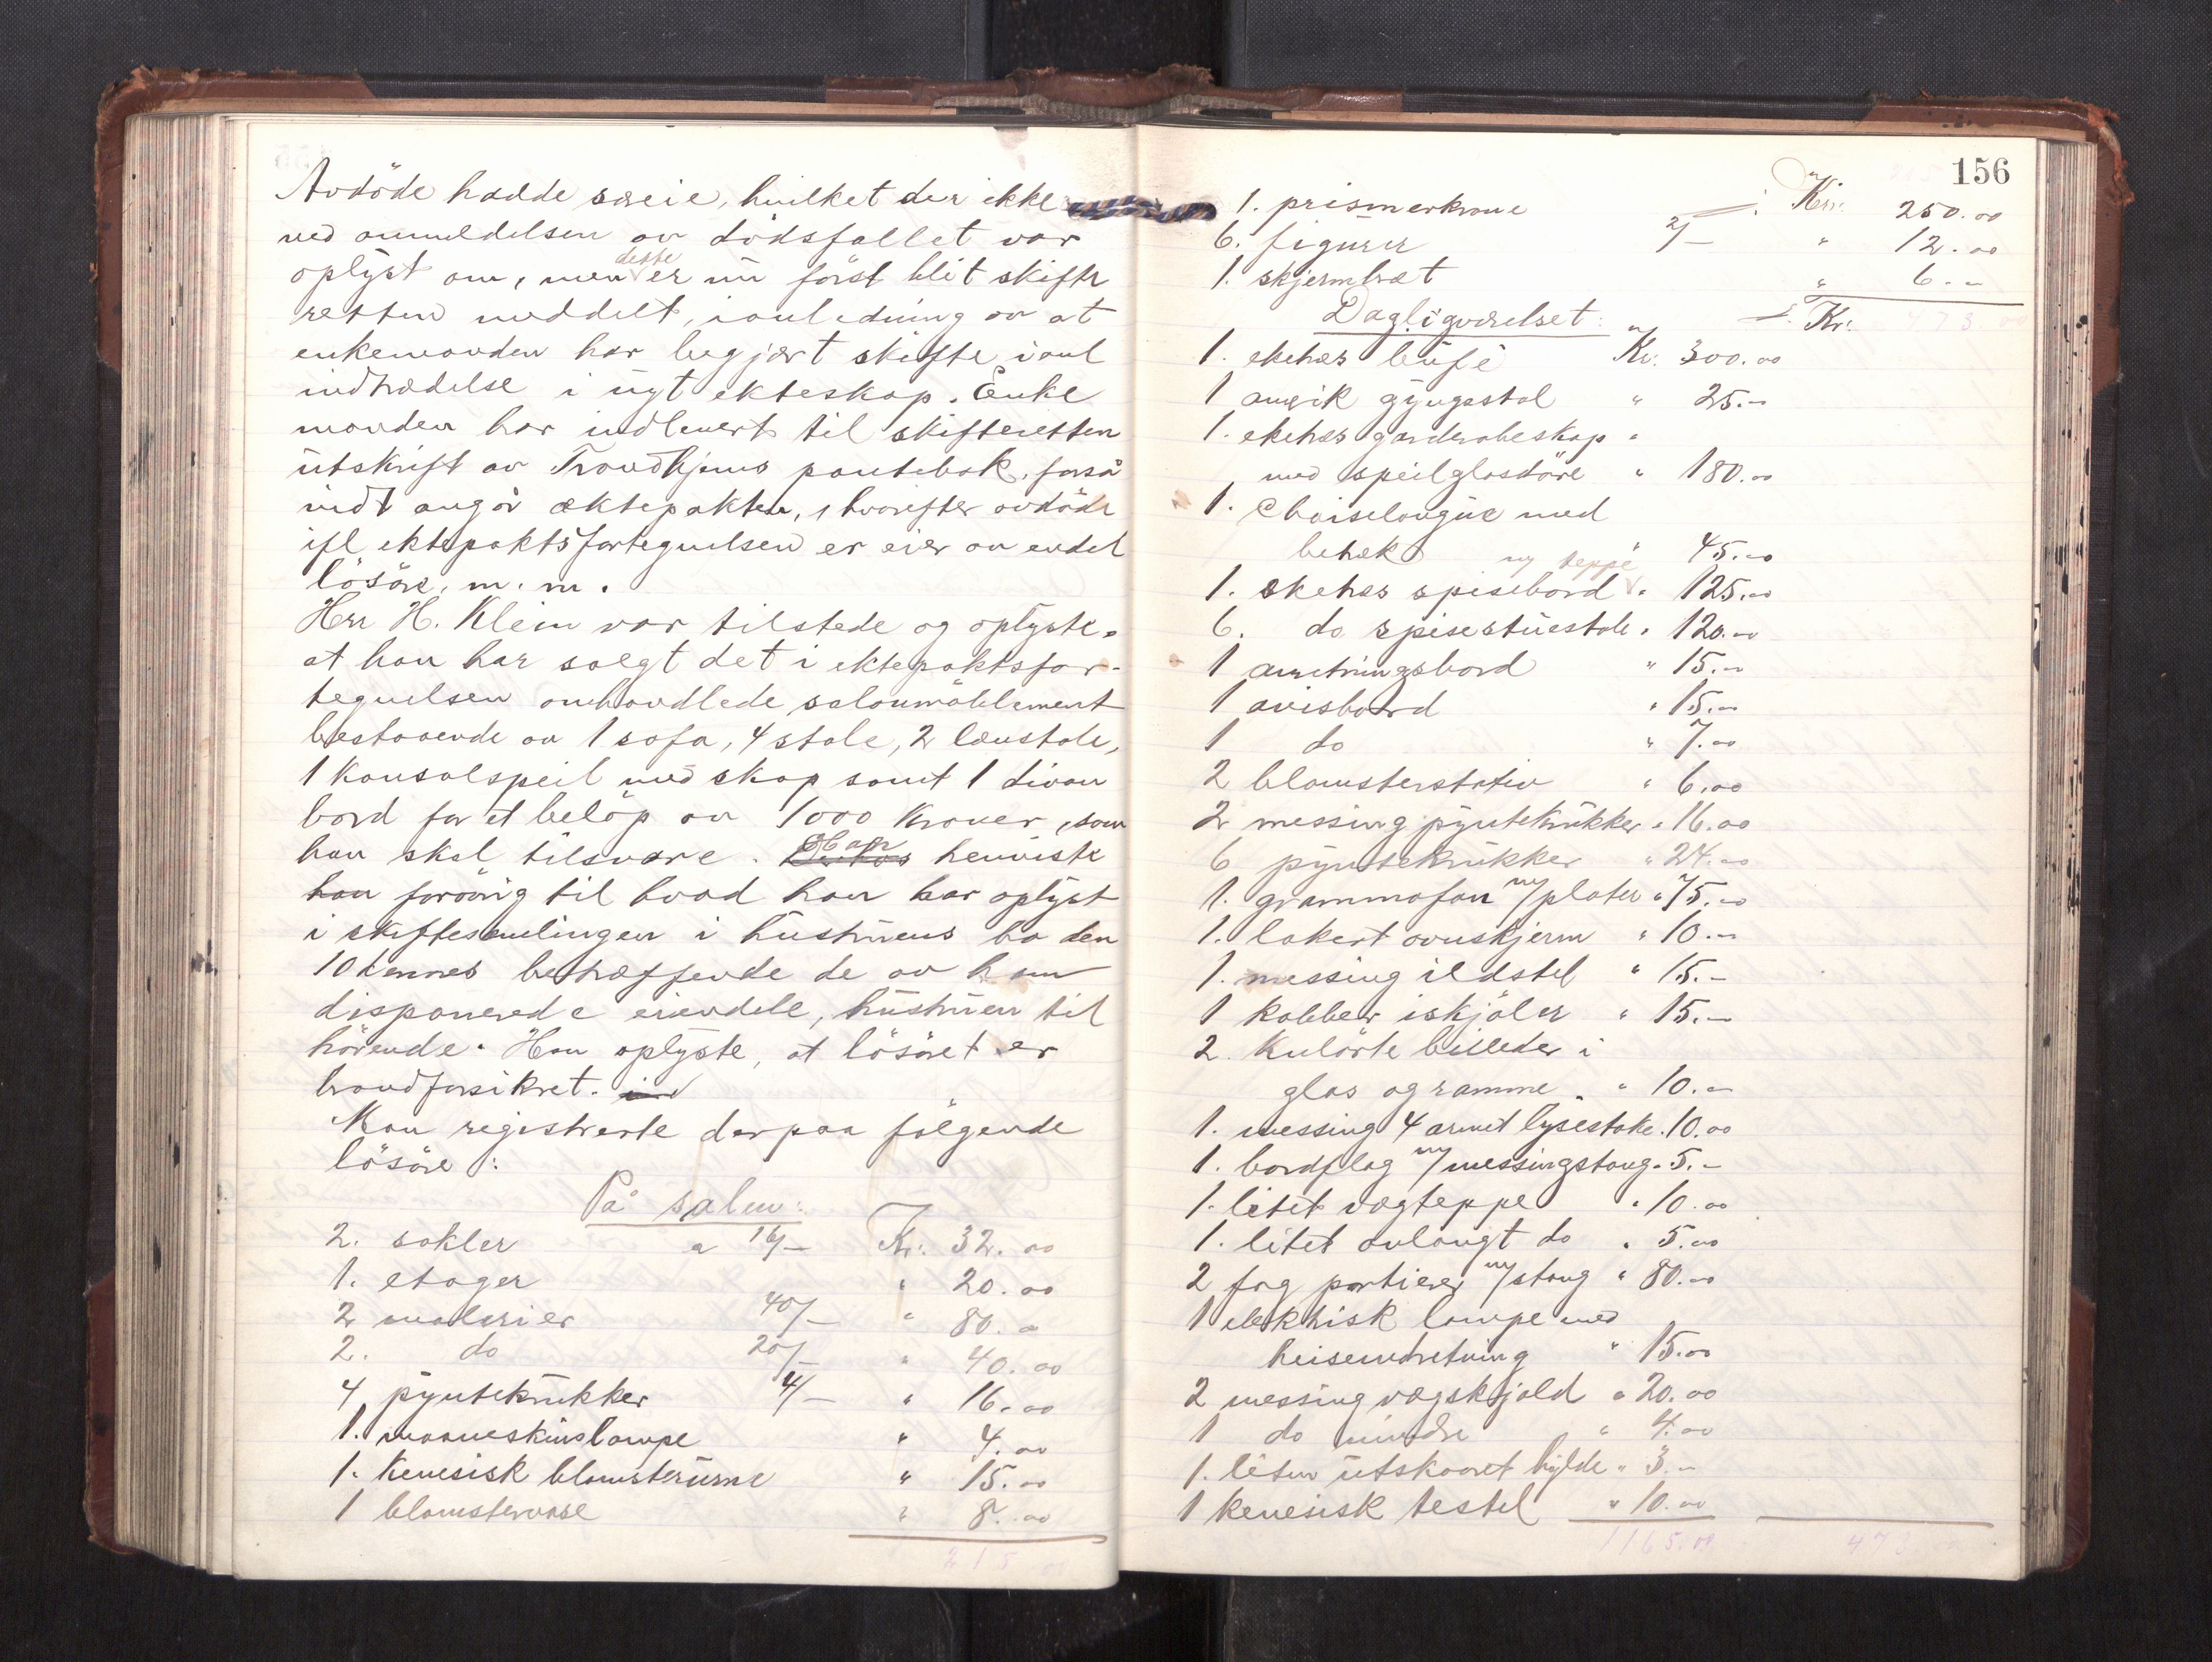 Avdöde hadde særeie, hvilket der ikke
ved anmeldelsen av dödsfallet var
oplyst om, men dette er nu först blit skifte
retten meddelt, i anledning av at
enkemanden har begjært skifte i anl
indtrædelse i nyt ekteskap. Enke
manden har indlevert til skifteretten
utskrift av Trondhjems pantebok, forså
vidt angår æktepakten, hvorefter avdöde
ifl ektepaktsfortegnelsen er eier av endel
lösöre, m.m.
Herr H. Klein var tilstede og oplyste,
at han har solgt det i ektepaktsfor-
tegnelsen omhandlede salonmöblement
bestaaende av 1 sofa, 4 stole, 2 lænstole,
1 Konsolspeil med skap samt 1 divan
bord for et belöp av 1000 Kroner, som
han skal tilsvare. Han henviste
han forövrig til hvad han har oplyst
i skiftesamlingen i hustruens bo den
10 dennes betræffende de av ham
disponerede eiendele, hustruen til
hörende. Han oplyste, at lösöret er
brandforsikret.
Man registrerte derpaa fölgende
lösöre:
På salen:
2. sokler a 16/- Kr. 32.00
1. etager " 20.00
2 malerier 40/- " 80.00
2. do 20/- " 40.00
4 pyntekrukker 4/- " 16.00
1. maaneskinslampe " 4.00
1. kinesisk blomsterurne " 15.00
1 blomstervase " 8.00
215.00
156
1. prismekrone Kr. 250.00
6. figurer 2/- " 12.00
1. skjermbræt " 6.-
Dagligværelset: Kr. 473.00
1. eketræs bufé Kr. 300.00
1 amrik gyngestol " 25.-
1. eketræs garderobeskap
med speilglasdöre " 180.00
1. Chaiselongue med
betræk 45.00
1. eketræs spisebord m/ teppe " 125.00
6. do spisestuestole " 120.00
1 anretningsbord " 15.-
1 avisbord " 15.-
1 do " 7.00
2 blomsterstativ " 6.00
2 messing pyntekrukker " 16.00
6 pyntekrukker " 24.00
1. grammofon m/ plater " 75.00
1. lakert ovnskjerm " 10.-
1. messing ildstel " 15.-
1 kobber iskjöler " 15.-
2. kulörte billeder i
glas og ramme " 10.-
1. messing 4 armet lysestake " 10.00
1. bordflag m/ messingstang " 5.-
1. litet vægteppe " 10.00
1. litet avlangt do " 5.00
2 fag portierer m/ stang " 80.00
1 elektrisk lampe med
heiseindretning " 15.00
2 messing vægskjold " 20.00
1 do mindre " 4.00
1. liten utskaaret hylde " 3.-
1 kinesisk testel " 10.00
1165.00 473